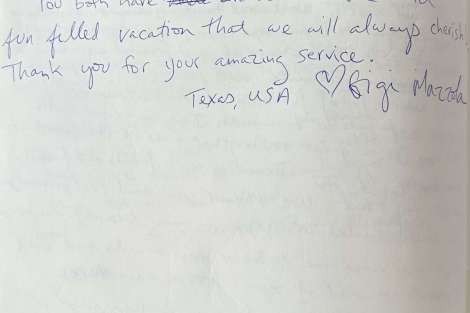 You both have
fun filled vacation that we will always cherish.
Thank you for your amazing service.
Texas, USA ♡ Gigi Mazzola